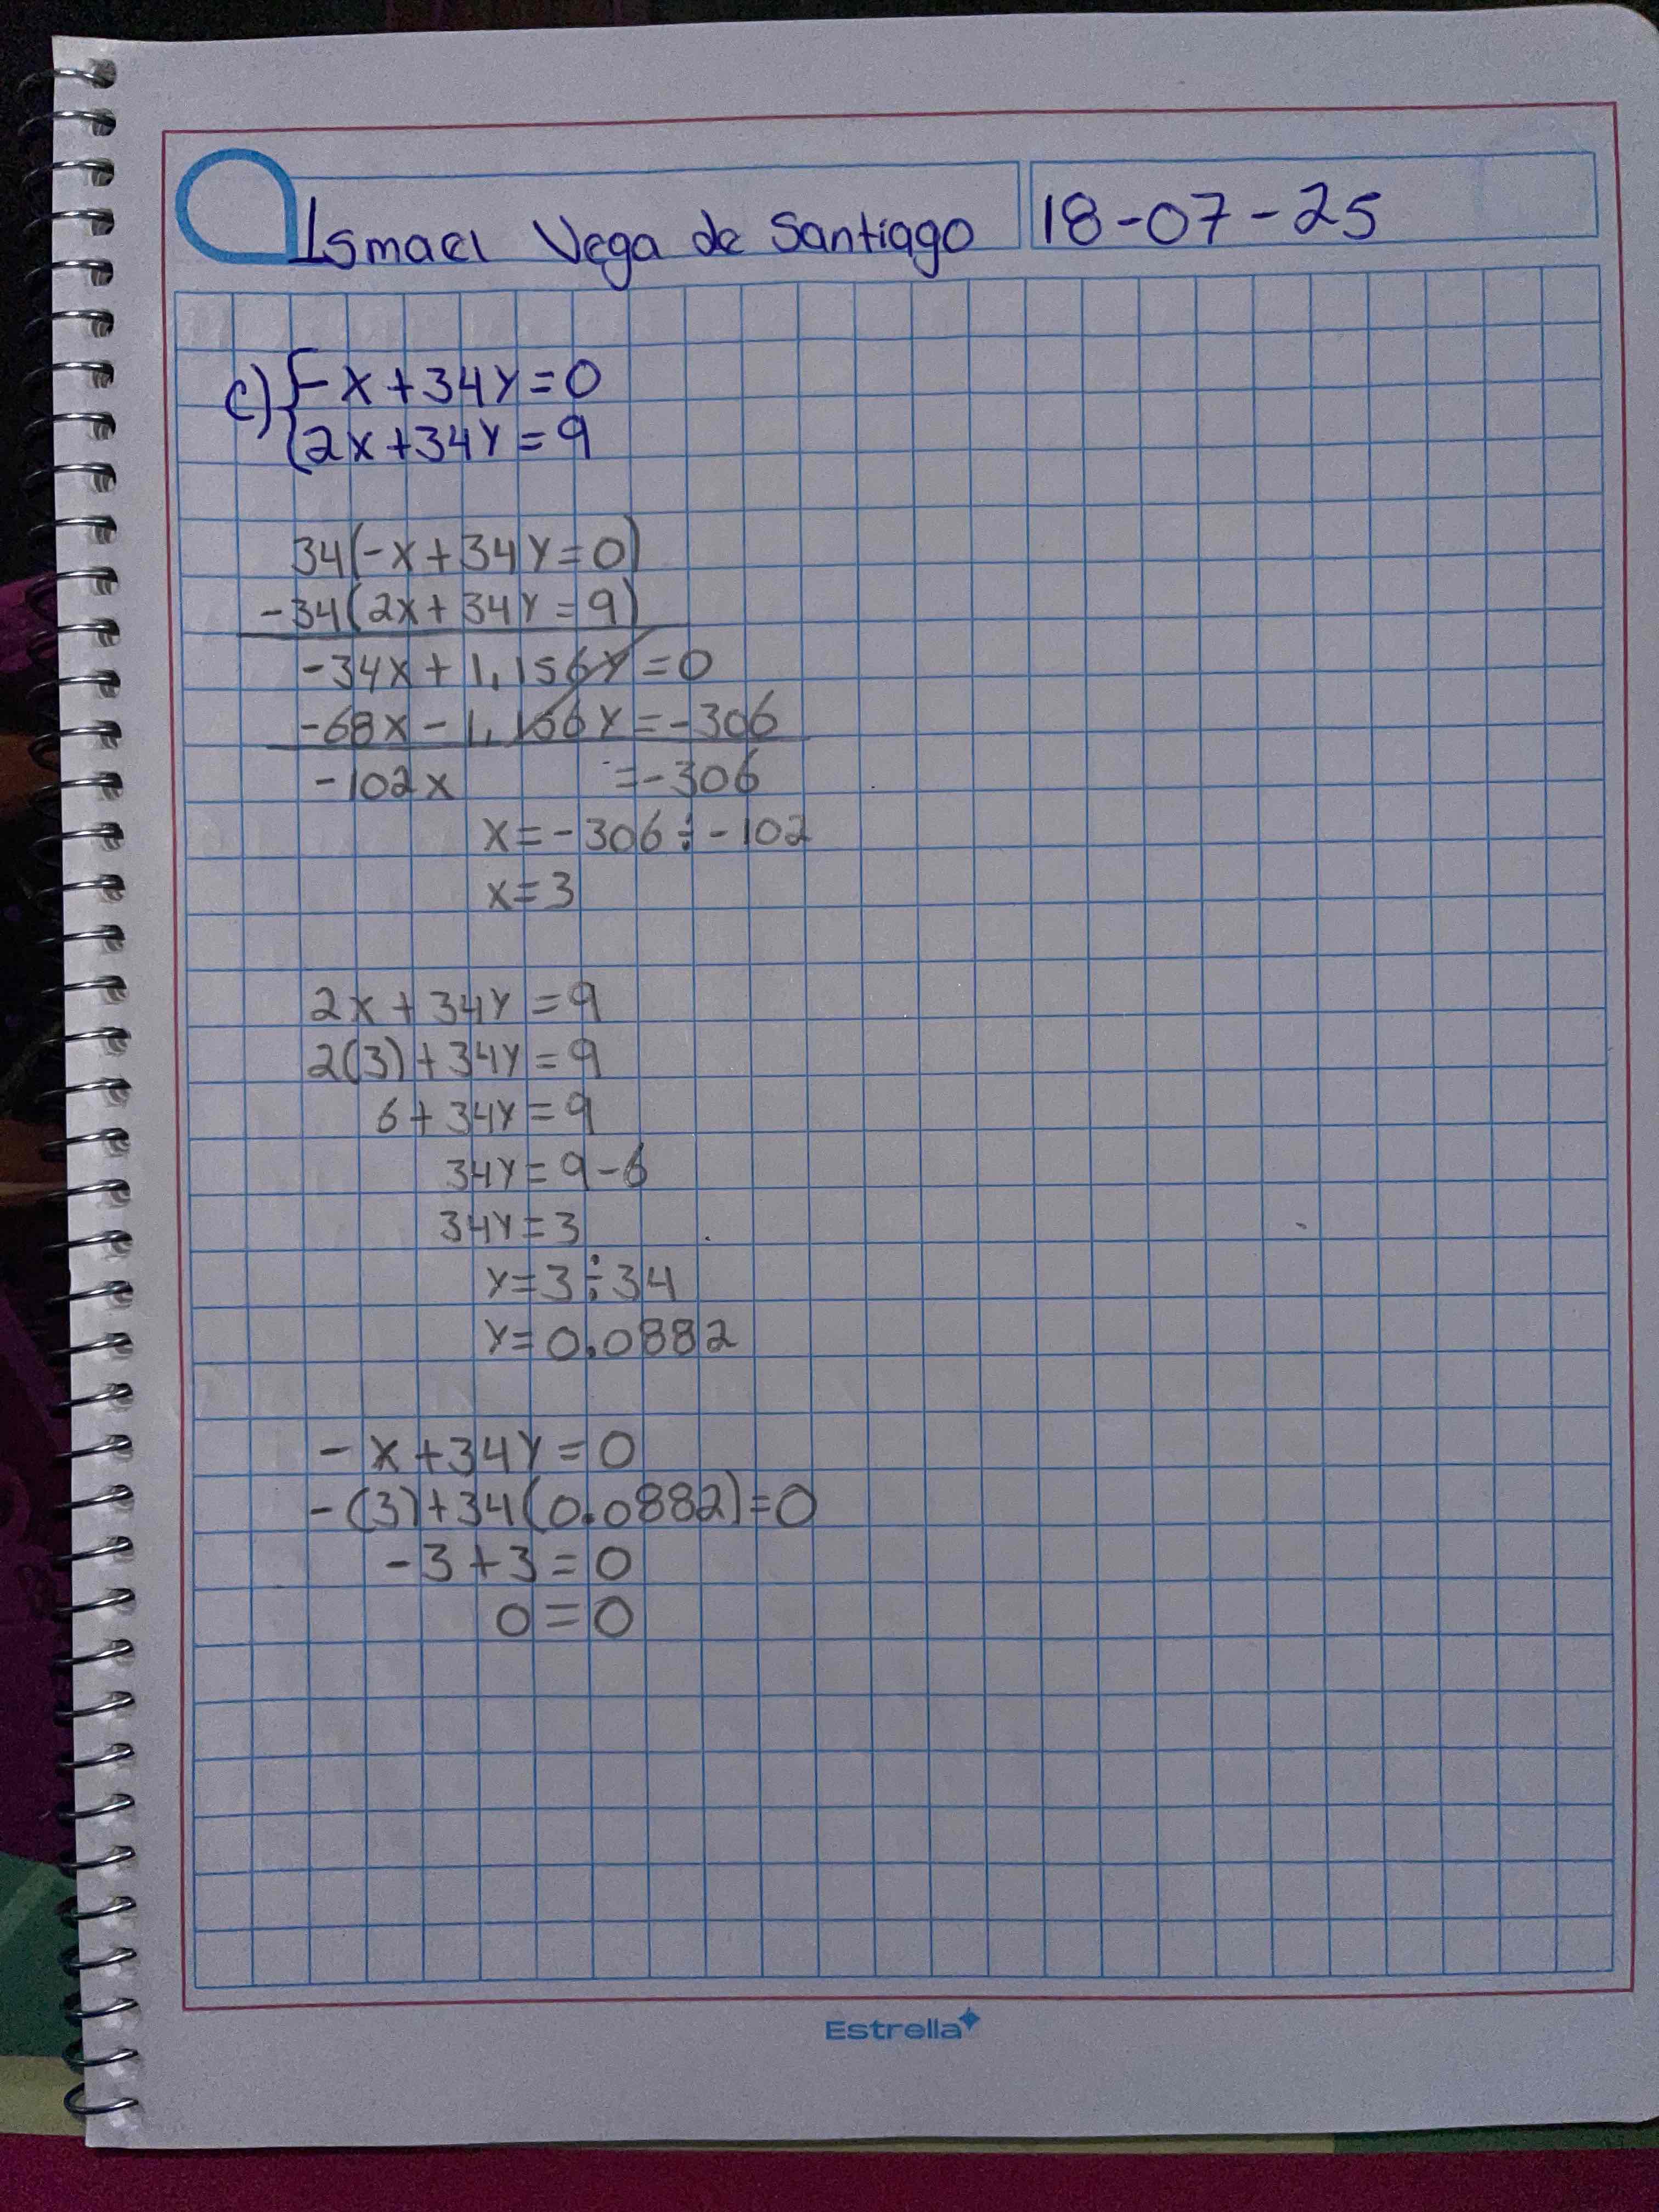 Ismael Vega de Santiago 18-07-25
c) { -x+34y=0
2x+34y=9
34(-x+34y=0)
-34(2x+34y=9)
-34x+1,156y=0
-68x-1,156y=-306
-102x =-306
x=-306÷-102
x=3
2x+34y=9
2(3)+34y=9
6+34y=9
34y=9-6
34y=3
y=3÷34
y=0.0882
-x+34y=0
-(3)+34(0.0882)=0
-3+3=0
0=0
Estrella